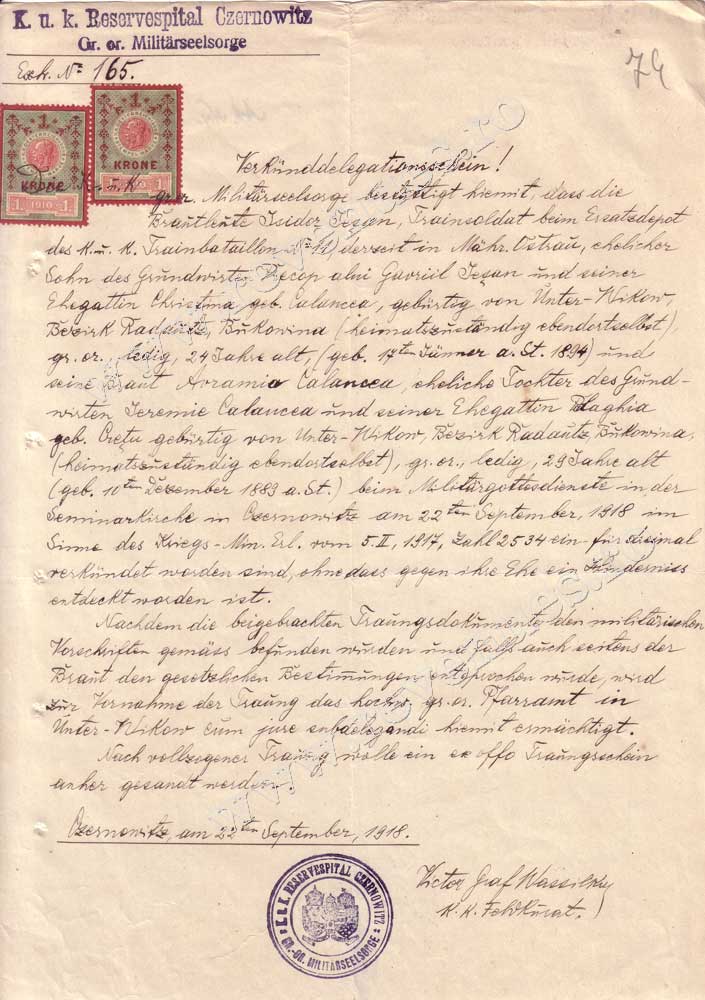 K. u. k. Reservespital Czernowitz
Gr. or. Militärseelsorge
Exh. № 165.
74
1
KRONE
1 1910 1
1
KRONE
1 1910 1
Verkünddelegationsschein!
Die K. u. K.
gr. or. Militärseelsorge bestättigt hiemit, dass die
Brautleute Isidor Ieşan, Trainsoldat beim Ersatzdepot
des K. u. K. Trainbataillon № 11, derzeit in Mähr. Ostrau, ehelicher
Sohn des Grundwirten alui Gavriil Ieşan und seiner
Ehegattin Christina geb. Calancea, gebürtig von Unter-Wikow,
Bezirk Radautz, Bukowina (heimatszuständig ebendortselbst),
gr. or., ledig, 24 Jahre alt, (geb. 17ten Jänner a. St. 1894) und
seine Braut Avramia Calancea, eheliche Tochter des Grund-
wirten Ieremie Calancea und seiner Ehegattin Plaghia
geb. Creţu gebürtig von Unter-Wikow, Bezirk Radautz, Bukowina,
(heimatszuständig ebendortselbst), gr. or., ledig, 29 Jahre alt
(geb. 10ten Dezember 1889 a. St.) beim Militärgottesdienste in der
Seminarkirche in Czernowitz am 22ten September, 1918 im
Sinne des Kriegs-Min. Erl. vom 5. II, 1917, Zahl 2534 ein- für dreimal
verkündet worden sind, ohne dass gegen ihre Ehe ein Hinderniss
entdeckt worden ist.
Nachdem die beigebrachten Trauungsdokumente den militärischen
Vorschriften gemäss befunden wurden und falls auch seitens der
Braut den gesetzlichen Bestimmungen entsprochen wurde, wird
zur Vornahme der Trauung das hochw. gr. or. Pfarramt in
Unter-Wikow cum jure subdelegandi hiemit ermächtigt.
Nach vollzogener Trauung wolle ein ex offo Trauungsschein
anher gesandt werden.
Czernowitz, am 22ten September, 1918.
Victor Graf Wassilko
K. K. Feldkurat.
K. u. K. RESERVESPITAL CZERNOWITZ
GR.-OR. MILITÄRSEELSORGE